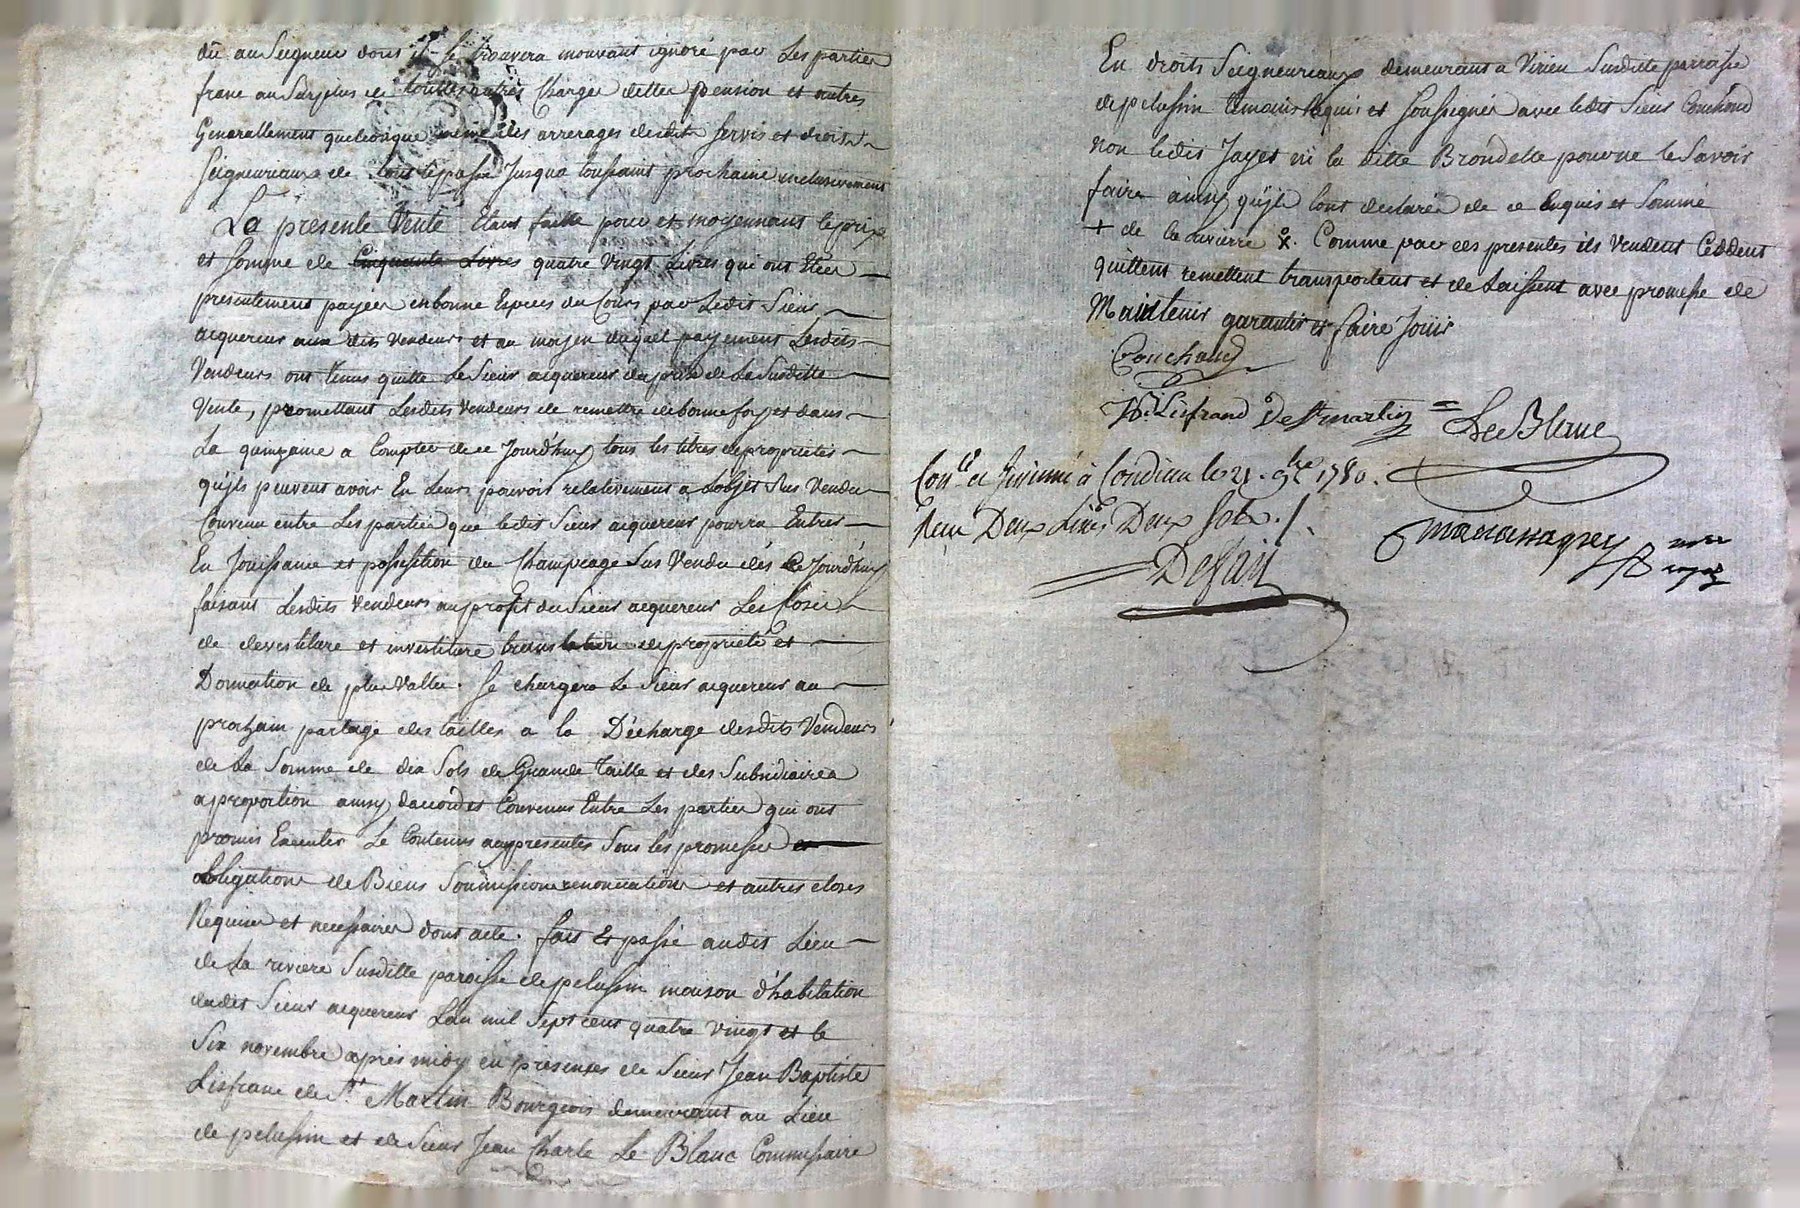 dû au Seigneur dont il se trouvera mouvant ignoré par Les parties
franc au Surplus de toutes autres Charges dettes pension et autres
Generallement quelconque même des arrerages desdits Servis et droits
Seigneuriaux de tout le passé Jusqua toussaint prochaine inclusivement
La presente Vente Etant faitte pour et moyennant le prix
et Somme de Cinquante Livres quatre Vingt Livres qui ont Eteés
presentement payees en bonne Especes du Cours par Ledit Sieur
acquereur aux dits Vendeurs et au moyen duquel payement Lesdits
Vendeurs ont tenus quitte Le Sieur acquereur du prix de La Susditte
Vente, promettant Lesdits Vendeurs de remettre de bonne foy et dans
La quinzaine a Compter de ce Jourd'huy tous les titres de proprietés
qu'jls peuvent avoir En Leurs pouvoir relativement a Lobjet Sus Vendu
Convenu entre Les parties que ledit Sieur acquereur pourra Entrer
En Jouissance et possession du Champeage Sus Vendu dés Ce Jourd'huy
faisant Lesdits Vendeurs au profit du Sieur acquereur Les Closes
de devestiture et investiture translation de proprieté et
Donnation de plus Vallue. Se chargera Le Sieur acquereur au
prochain partage des tailles a la Décharge desdits Vendeurs
de La Somme de dix Sols de Grande Taille et des Subsidiaires
a proportion ainsy daccord et Convenus Entre Les parties qui ont
promis Executer Le Contenus aux presentes Sous les promesses et
obligations de Biens Soumissions renonciations et autres closes
Requises et necessaires dont acte. fait Et passé audit Lieu
de La riviere Susditte paroisse de pelussin maison d'habitation
dudit Sieur acquereur L'an mil Sept cent quatre Vingt et le
Six novembre apres midy en presences de Sieur Jean Baptiste
Lisfranc de St. Martin Bourgeois demeurant au Lieu
de pelussin et de Sieur Jean Charle Le Blanc Commissaire
En droits Seigneuriaux demeurant a Virieu Susditte parroisse
de pelussin temoins Requi et Soussignés avec ledit Sieur Couchoud
non ledit Jayet ni la ditte Brondelle pour ne le Savoir
faire ainsy qu'jls lont declarés de ce Enquis et Sommé
+ de la riviere x. Comme par ces presentes ils Vendent Ceddent
quittent remettent transportent et delaissent avec promesse de
Maintenir garentir et faire Jouïr
Couchoud
Lisfranc De St martin
Le Blanc
Conlé. et Jnsinué à Condrieu le 21. 9bre 1780.
Reçu Deux Livres Deux Sols.